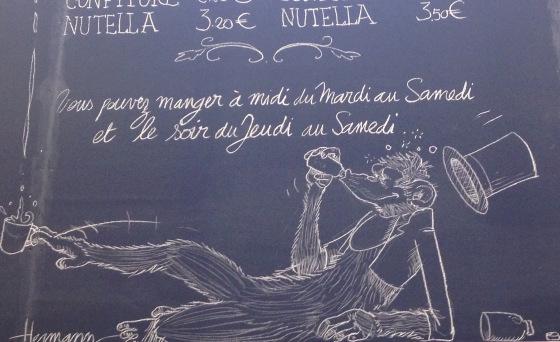 CONFITURE
NUTELLA 3.20€ NUTELLA 3.50€
Vous pouvez manger à midi du Mardi au Samedi
et le soir du Jeudi au Samedi.
Hermann